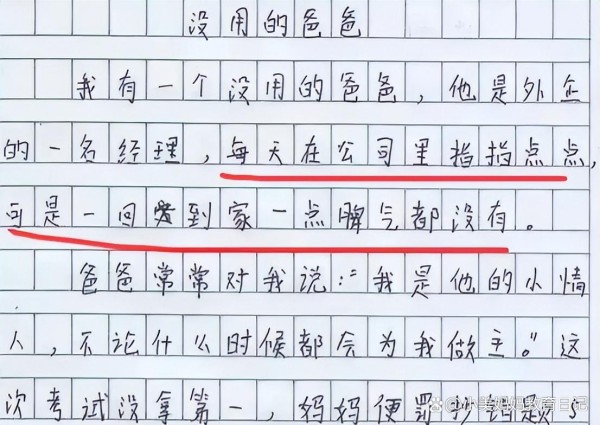 没用的爸爸
我有一个没用的爸爸，他是外企
的一名经理，每天在公司里指指点点，
可是一回到家一点脾气都没有。
爸爸常常对我说：“我是他的小情
人，不论什么时候都会为我做主。”这
次考试没拿第一，妈妈便罚抄错题5
@小美妈妈教育日记